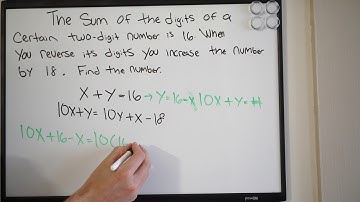 The Sum of the digits of a
Certain two-digit number is 16 When
You reverse its digits you increase the number
by 18. Find the number.
X + Y = 16 → Y = 16 - X 10X + Y = #
10X + Y = 10Y + X - 18
10X + 16 - X = 10(16